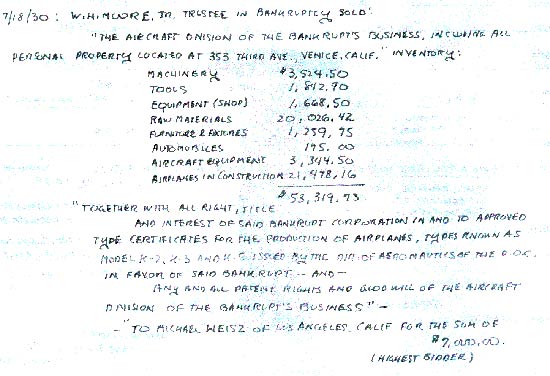 7/18/30: W.H. MOORE, JR. TRUSTEE IN BANKRUPTCY SOLD:
"THE AIRCRAFT DIVISION OF THE BANKRUPT'S BUSINESS, INCLUDING ALL
PERSONAL PROPERTY LOCATED AT 353 THIRD AVE., VENICE, CALIF." INVENTORY:
MACHINERY $3,524.50
TOOLS 1,842.70
EQUIPMENT (SHOP) 1,668.50
RAW MATERIALS 20,026.42
FURNITURE & FIXTURES 1,259.75
AUTOMOBILES 175.00
AIRCRAFT EQUIPMENT 3,344.50
AIRPLANES IN CONSTRUCTION 21,478.16
$53,319.73
"TOGETHER WITH ALL RIGHT, TITLE
AND INTEREST OF SAID BANKRUPT CORPORATION IN AND TO APPROVED
TYPE CERTIFICATES FOR THE PRODUCTION OF AIRPLANES, TYPES KNOWN AS
MODEL K-2, K-3 AND ISSUED BY THE DIR. OF AERONAUTICS OF THE D.O.C.
IN FAVOR OF SAID BANKRUPT -- AND --
ANY AND ALL PATENT RIGHTS AND GOOD WILL OF THE AIRCRAFT
DIVISION OF THE BANKRUPT'S BUSINESS" -
- "TO MICHAEL WEISZ OF LOS ANGELES, CALIF FOR THE SUM OF
$7,000.00.
(HIGHEST BIDDER)